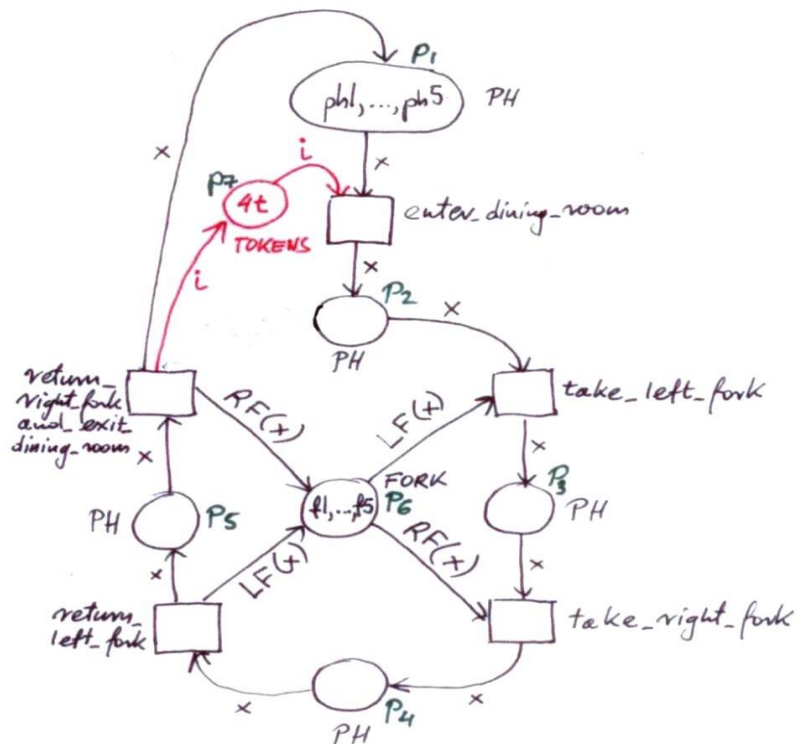 P1
ph1,...,ph5
PH
x
x
i
P7
4t
TOKENS
enter_dining_room
i
x
P2
x
PH
return_
right_fork
and_exit
dining_room
RF(x)
LF(x)
take_left_fork
x
x
FORK
P6
f1,...,f5
P3
PH
PH
P5
RF(x)
x
LF(x)
x
return_
left_fork
take_right_fork
x
x
P4
PH